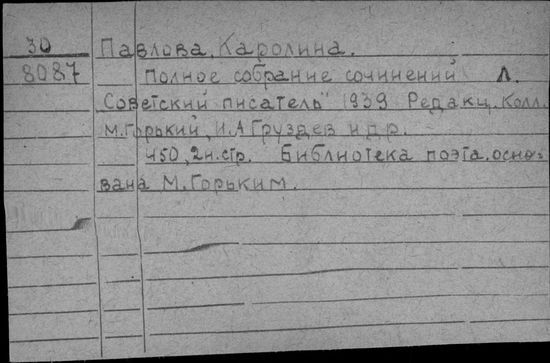 30 Павлова, Каролина.
8087 Полное собрание сочинений Л.
Советский писатель" 1939 Редакц. Колл.
М.Горький, И.А Груздев и др.
450, 2н.стр. Библиотека поэта, осно-
вана М.Горьким.